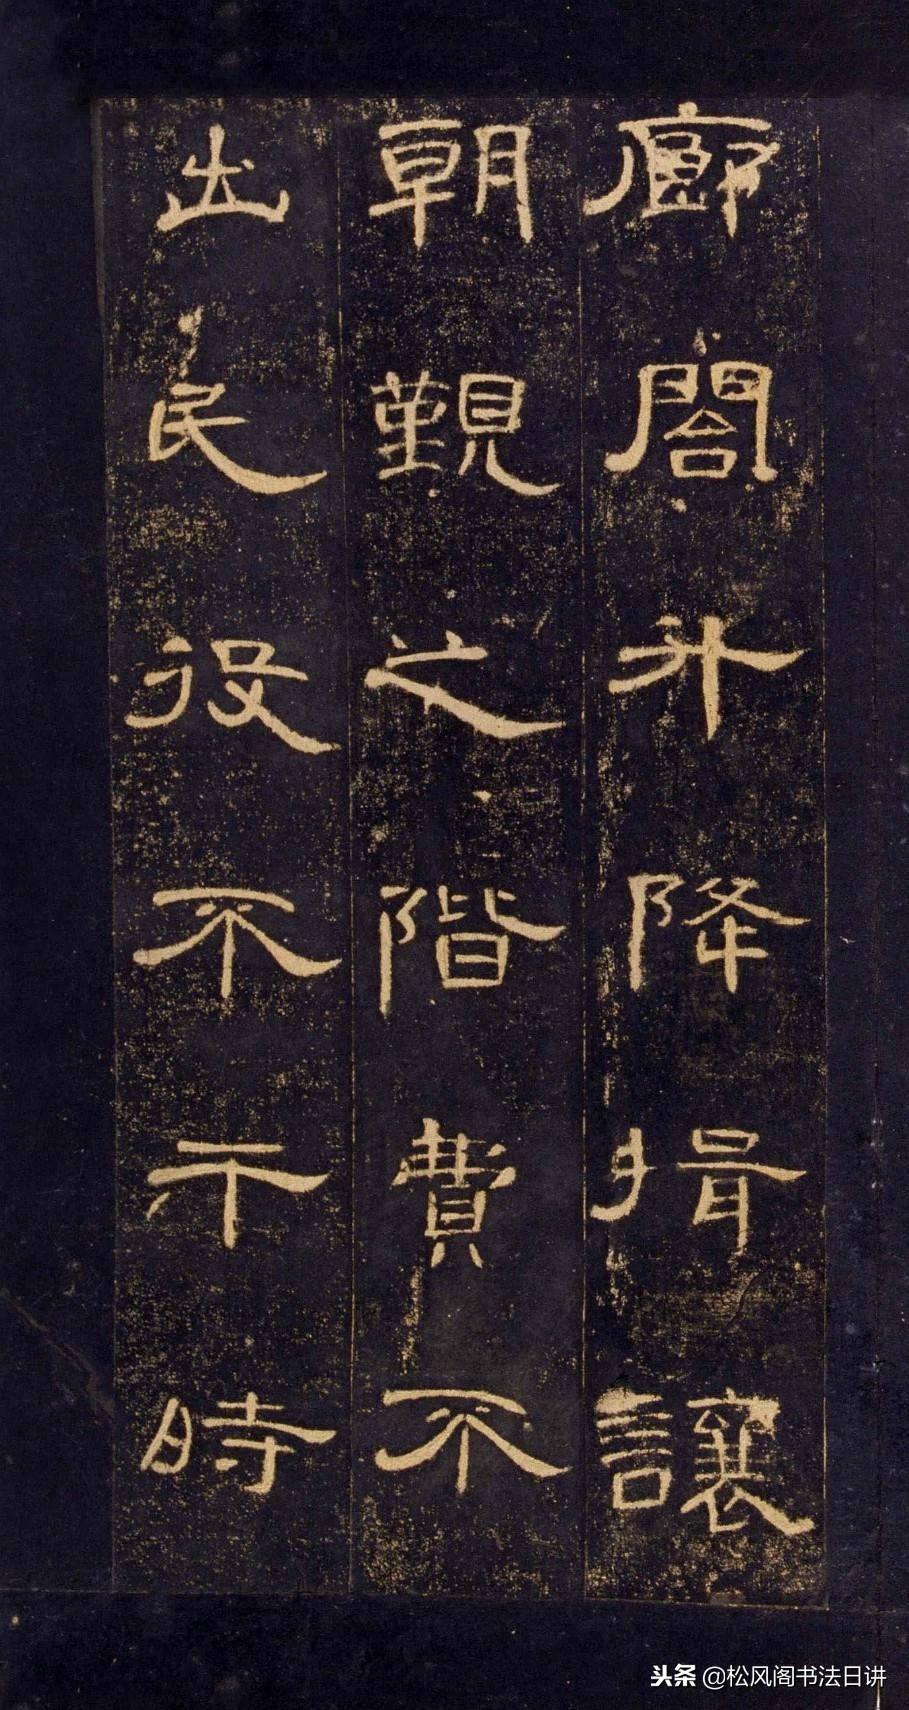 廊閣升降揖讓
朝覲之階費不
出民役不干時
头条 @松风阁书法日讲